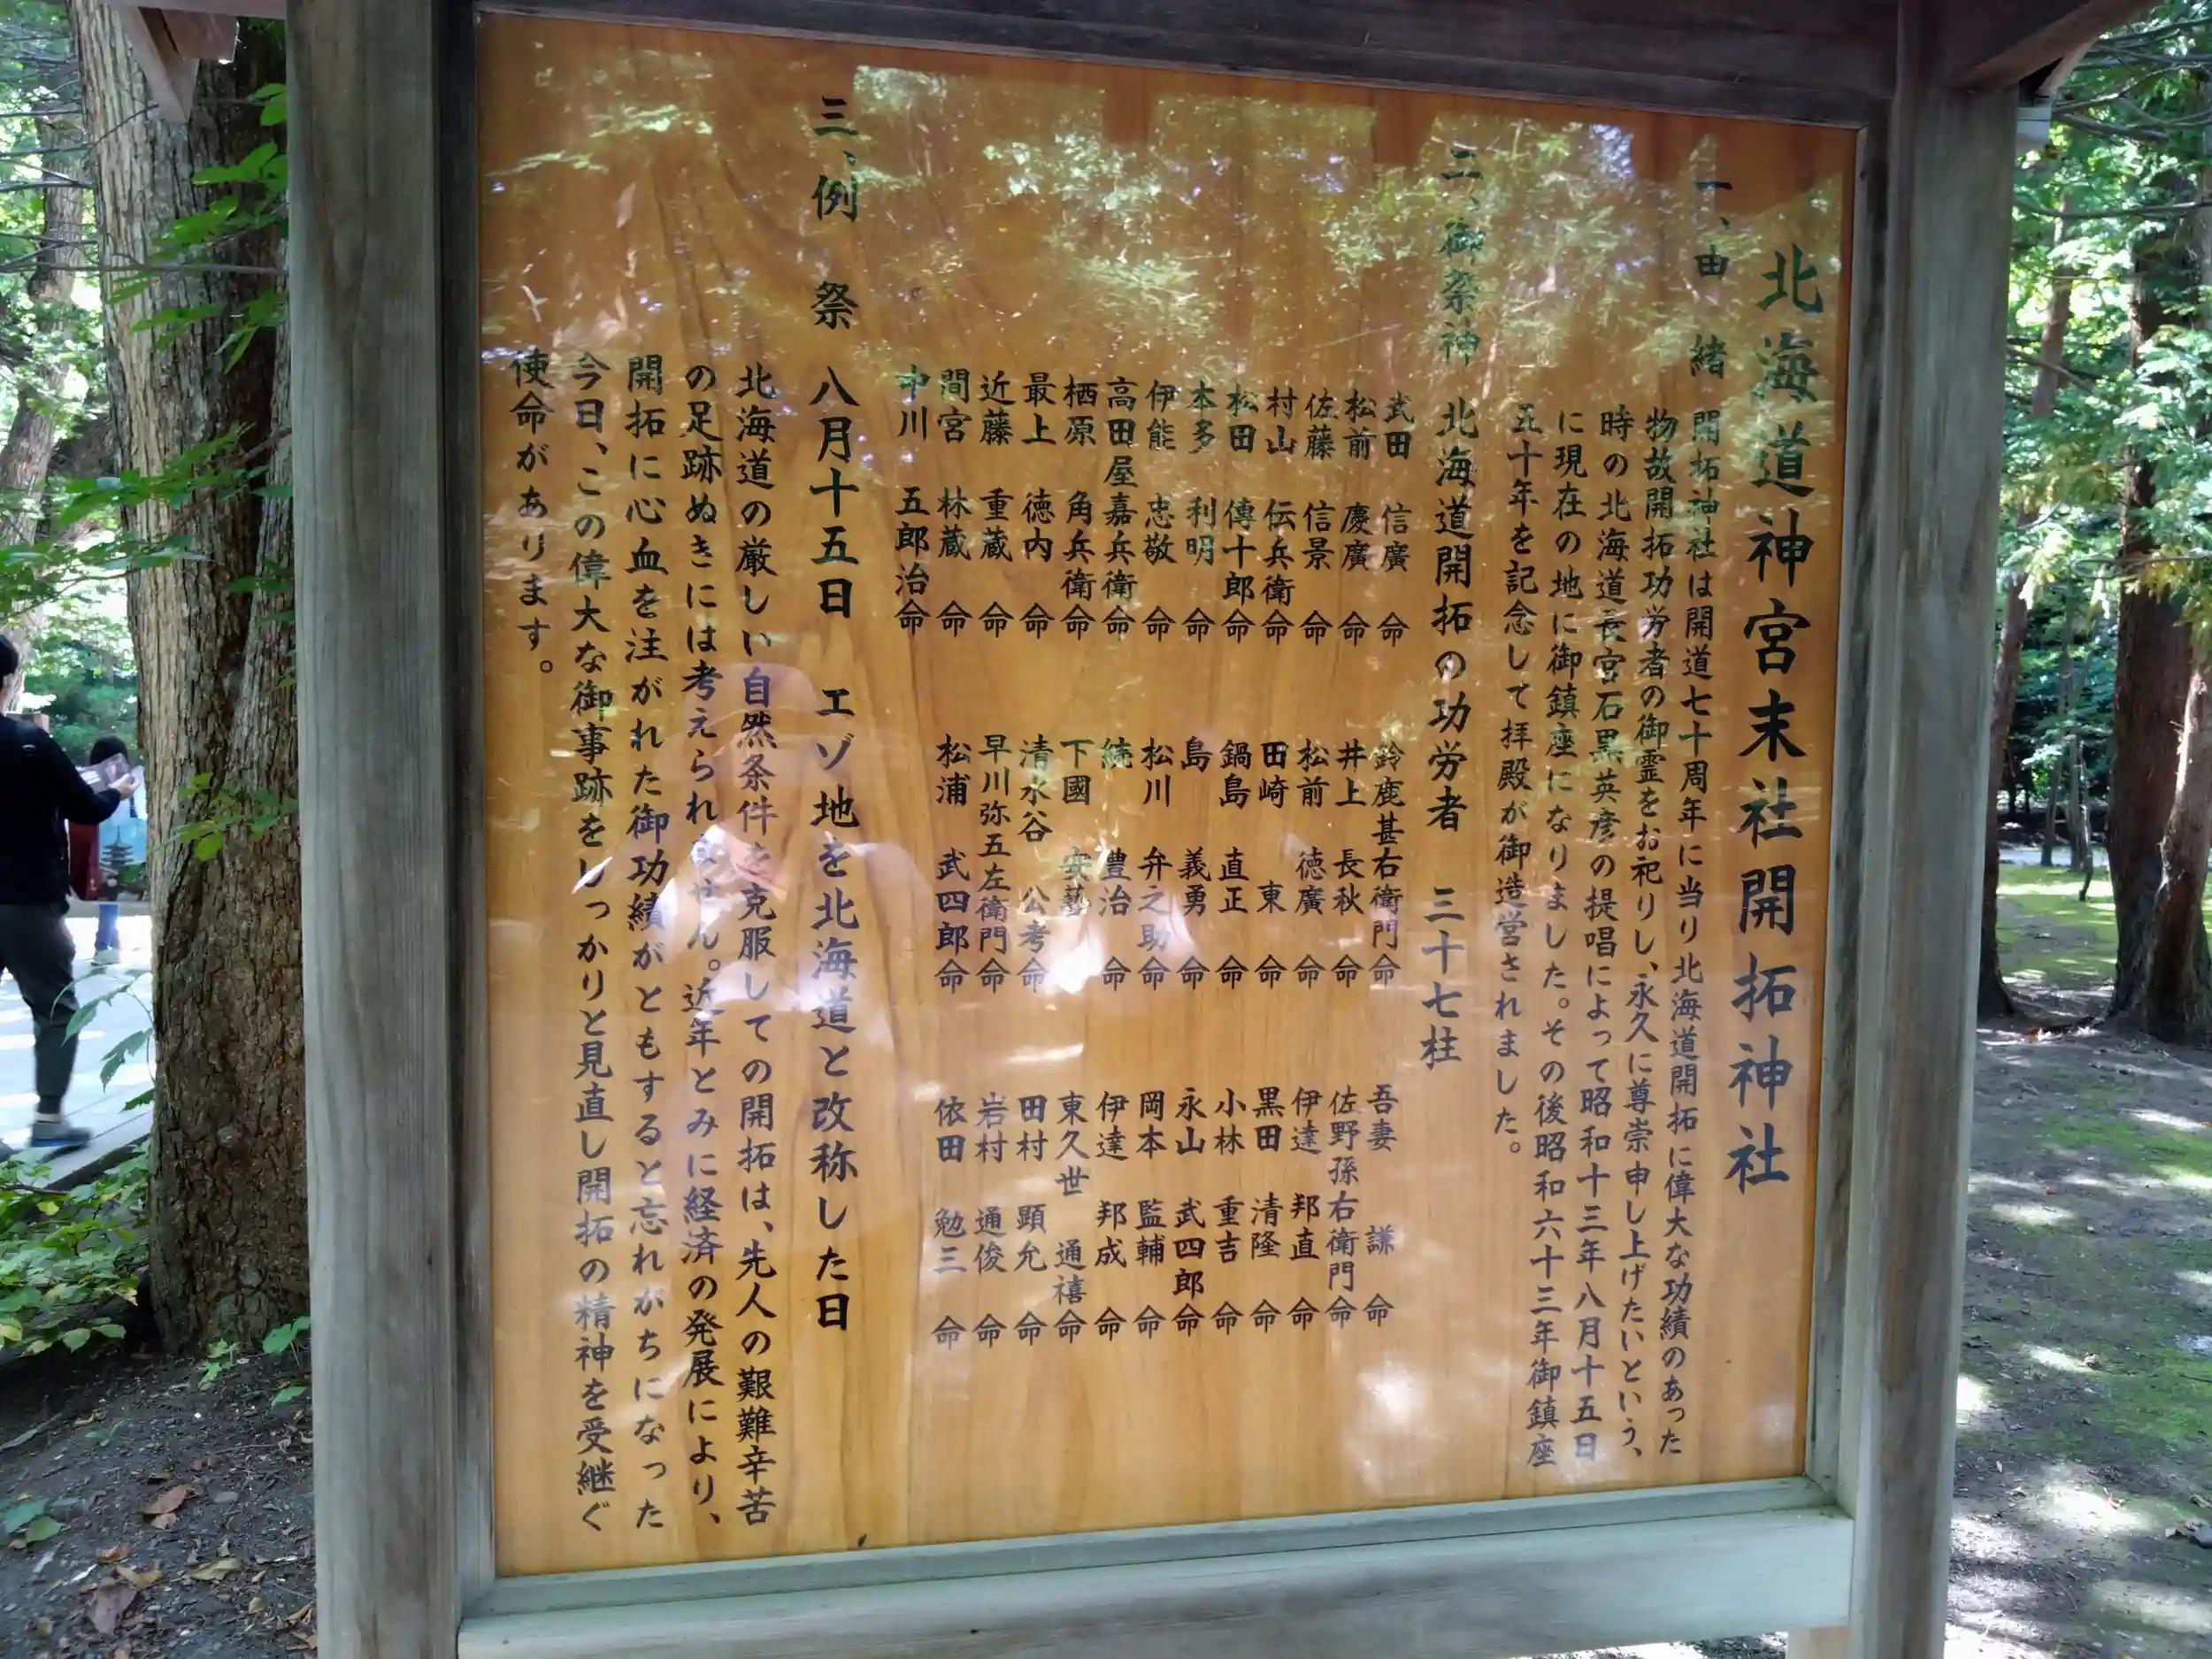 北海道神宮末社開拓神社
一、由緒
開拓神社は開道七十周年に当り北海道開拓に偉大な功績のあった
物故開拓功労者の御霊をお祀りし、永久に尊崇申し上げたいという、
時の北海道長官石黒英彦の提唱によって昭和十三年八月十五日
に現在の地に御鎮座になりました。その後昭和六十三年御鎮座
五十年を記念して拝殿が御造営されました。
二、御祭神 北海道開拓の功労者 三十七柱
武田 信廣 命
松前 慶廣 命
佐藤 信景 命
村山 伝兵衛 命
松田 傳十郎 命
本多 利明 命
伊能 忠敬 命
高田屋嘉兵衛 命
栖原 角兵衛 命
最上 徳内 命
近藤 重蔵 命
間宮 林蔵 命
中川 五郎治 命
鈴鹿甚右衛門 命
井上 長秋 命
松前 徳廣 命
田崎 東 命
鍋島 直正 命
島 義勇 命
松川 弁之助 命
続 豊治 命
下國 安藝 命
清水谷 公考 命
早川弥五左衛門 命
松浦 武四郎 命
吾妻 謙 命
佐野孫右衛門 命
伊達 邦直 命
黒田 清隆 命
小林 重吉 命
永山 武四郎 命
岡本 監輔 命
伊達 邦成 命
東久世 通禧 命
田村 顕允 命
岩村 通俊 命
依田 勉三 命
三、例祭 八月十五日 エゾ地を北海道と改称した日
北海道の厳しい自然条件を克服しての開拓は、先人の艱難辛苦
の足跡ぬきには考えられません。近年とみに経済の発展により、
開拓に心血を注がれた御功績がともすると忘れがちになった
今日、この偉大な御事跡をしっかりと見直し開拓の精神を受継ぐ
使命があります。